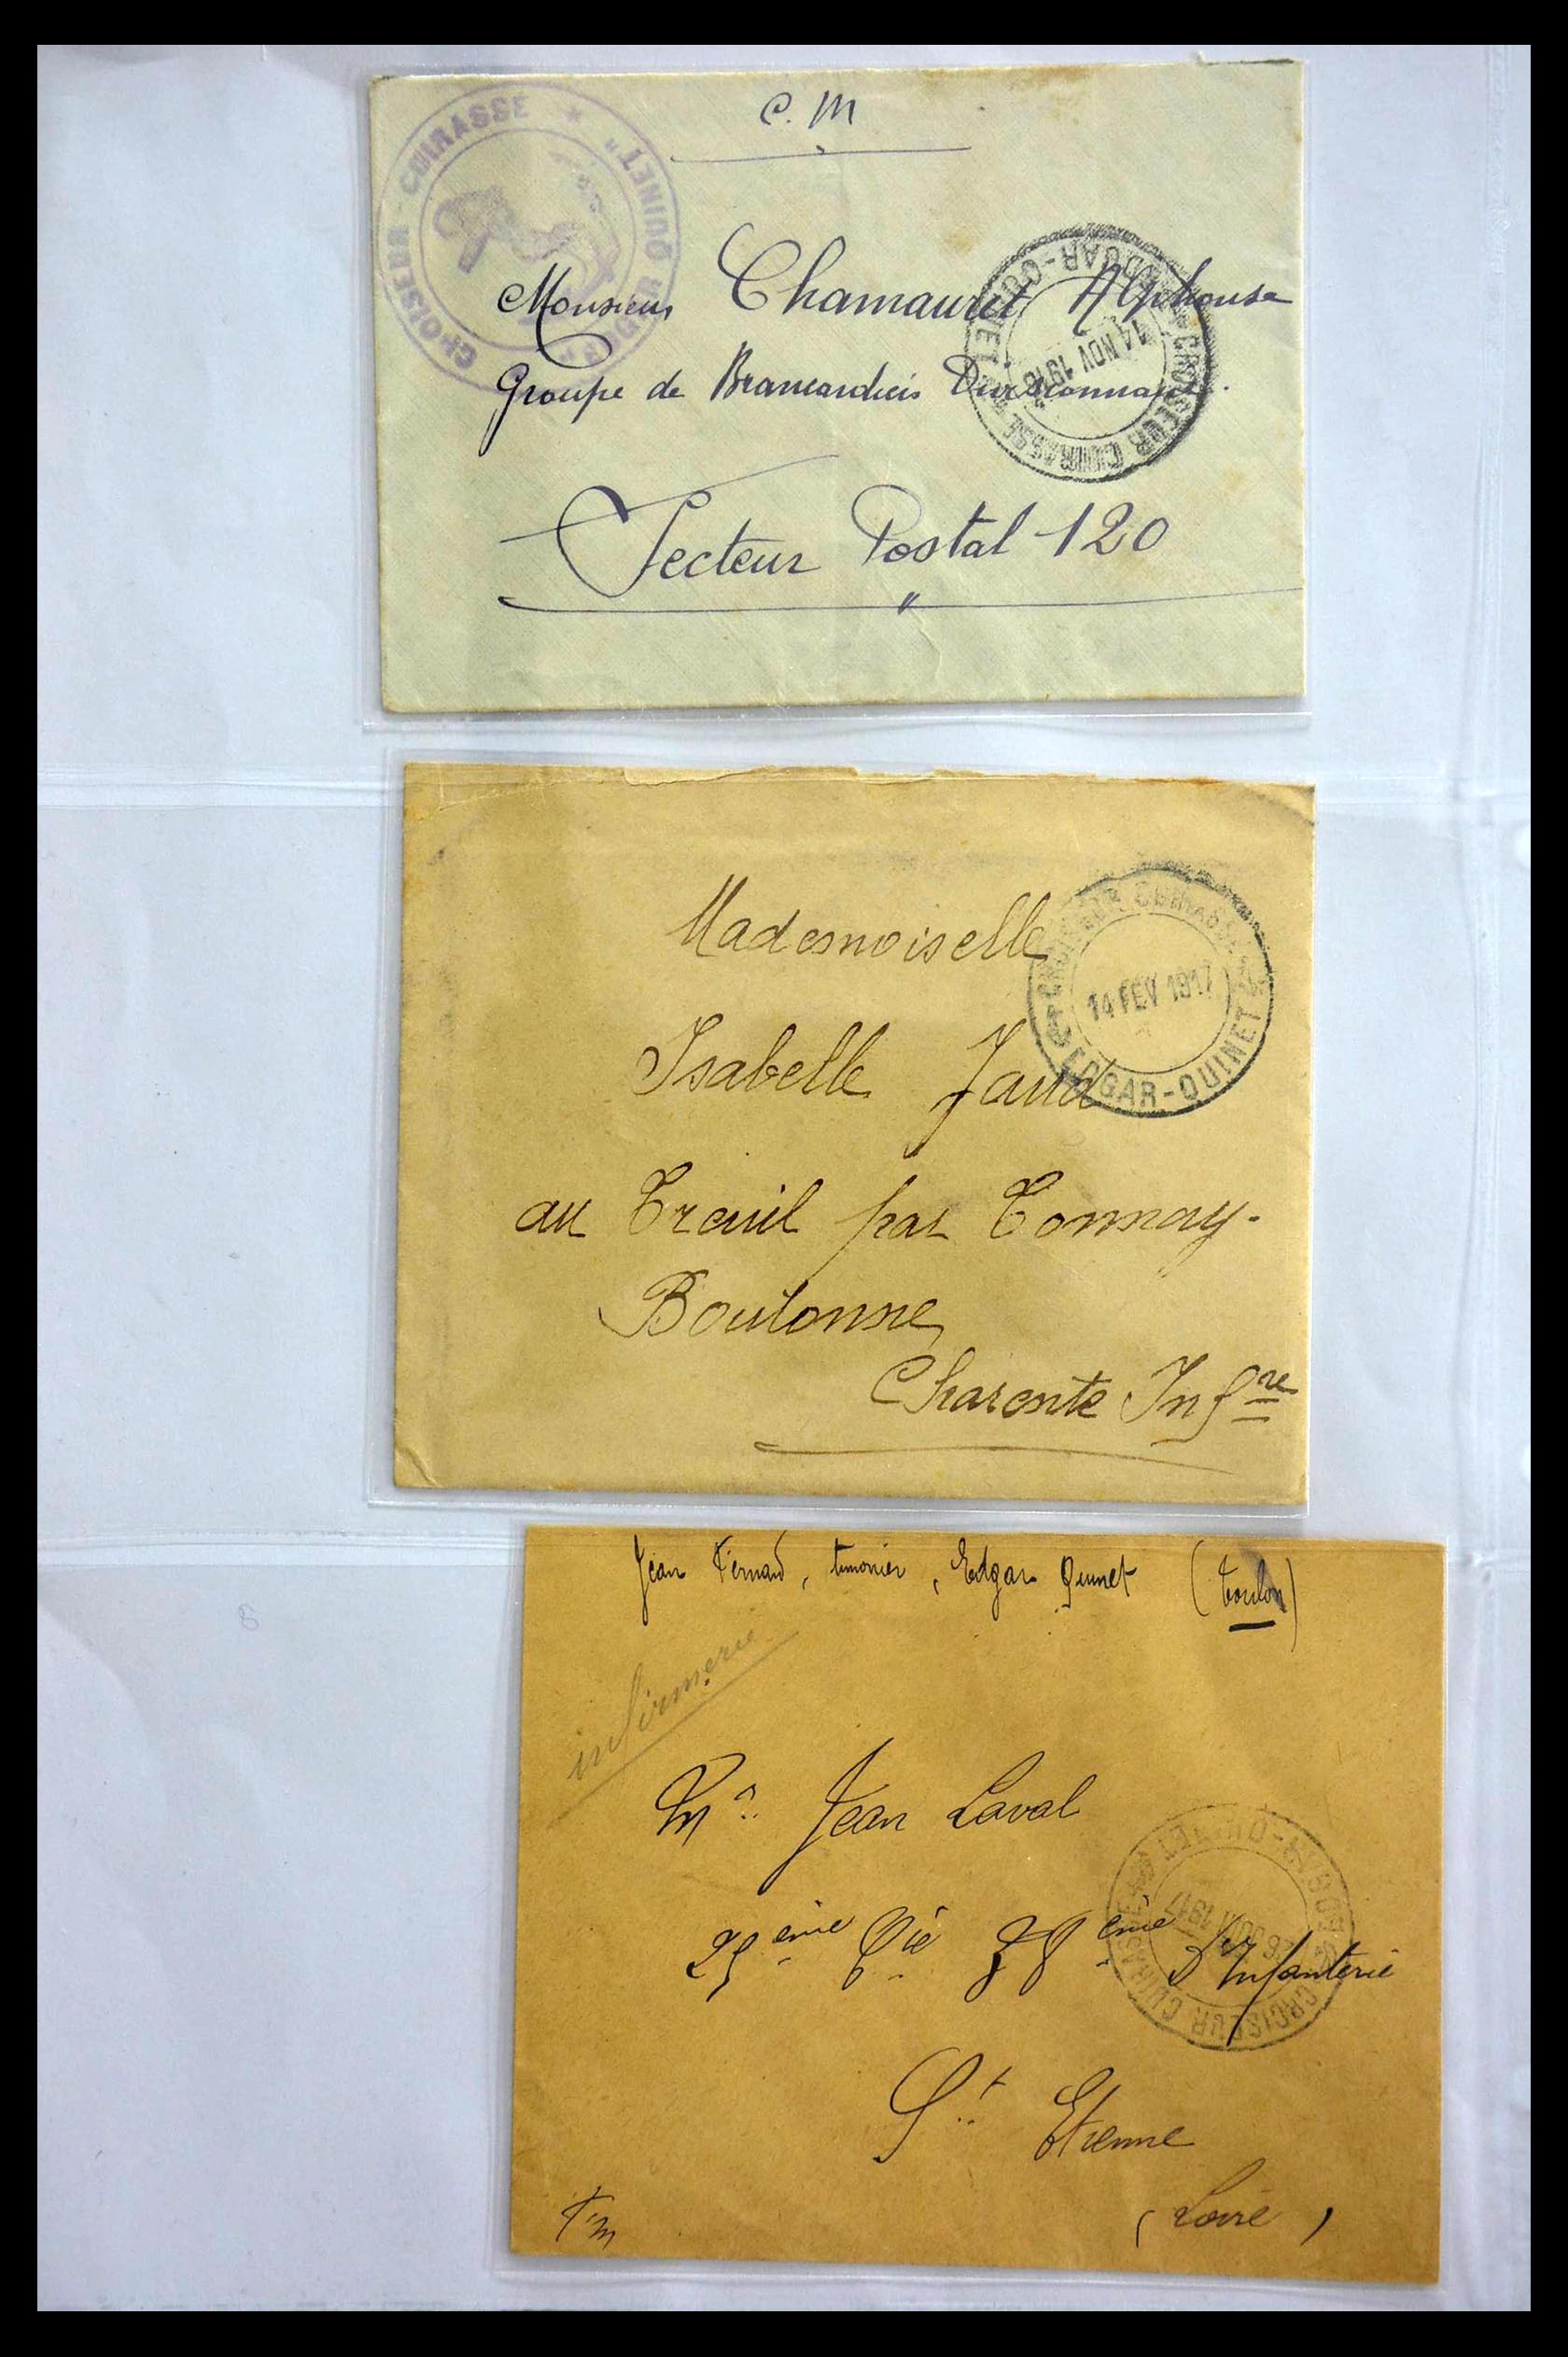 C. M
CROISEUR-CUIRASSE * "EDGAR QUINET"
Monsieur Chamauret Alphonse
Groupe de Brancardiers Divisionnaires.
Secteur Postal 120
CROISEUR CUIRASSE EDGAR-QUINET
14 NOV
Mademoiselle
Isabelle Jaud
au Treuil par Tonnay-
Boutonne
Charente Infre
CROISEUR CUIRASSE EDGAR-QUINET
14 FEV 1917
Jean Fernand, timonier, Edgar Quinet (Toulon)
infirmerie
Mr. Jean Laval
25ème Cie 38ème D'Infanterie
St Etienne
(Loire)
Fm
CROISEUR CUIRASSE EDGAR-QUINET
1917